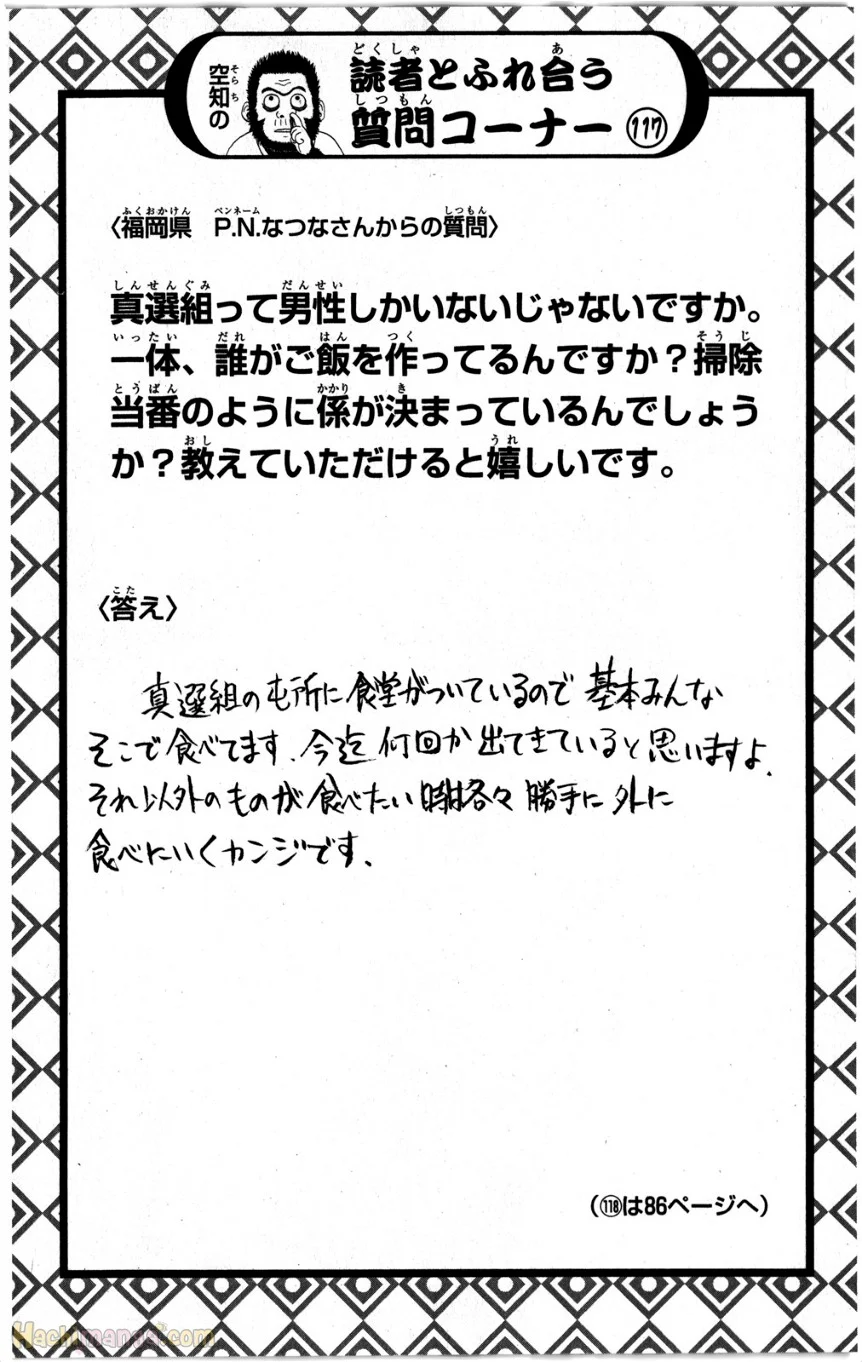 空知の
読者とふれ合う
質問コーナー 117
〈福岡県 P.N.なつなさんからの質問〉
真選組って男性しかいないじゃないですか。
一体、誰がご飯を作ってるんですか？掃除
当番のように係が決まっているんでしょう
か？教えていただけると嬉しいです。
〈答え〉
真選組の屯所に食堂がついているので基本みんな
そこで食べてます、今迄何回か出てきていると思いますよ、
それ以外のものが食べたい時は各々勝手に外に
食べにいくカンジです、
（118は86ページへ）
Hachimanas.com